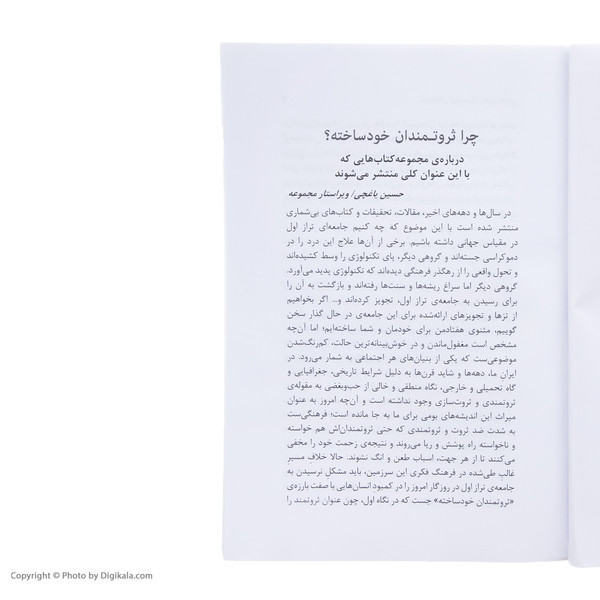 چرا ثروتمندان خودساخته؟
درباره‌ی مجموعه‌کتاب‌هایی که
با این عنوان کلی منتشر می‌شوند
حسین یاغچی/ ویراستار مجموعه
در سال‌ها و دهه‌های اخیر، مقالات، تحقیقات و کتاب‌های بی‌شماری
منتشر شده است با این موضوع که چه کنیم جامعه‌ی تراز اول
در مقیاس جهانی داشته باشیم. برخی از آن‌ها علاج این درد را در
دموکراسی جسته‌اند و گروهی دیگر، پای تکنولوژی را وسط کشیده‌اند
و تحول واقعی را از رهگذر فرهنگی دیده‌اند که تکنولوژی پدید می‌آورد.
گروهی دیگر اما سراغ ریشه‌ها و سنت‌ها رفته‌اند و بازگشت به آن را
برای رسیدن به جامعه‌ی تراز اول، تجویز کرده‌اند و... اگر بخواهیم
از تزها و تجویزهای ارائه‌شده برای این جامعه‌ی در حال گذار سخن
گوییم، مثنوی هفتادمن برای خودمان و شما ساخته‌ایم؛ اما آن‌چه
مشخص است مغفول‌ماندن و در خوش‌بینانه‌ترین حالت، کم‌رنگ‌شدن
موضوعی‌ست که یکی از بنیان‌های هر اجتماعی به شمار می‌رود. در
ایرانِ ما، دهه‌ها و شاید قرن‌ها به دلیل شرایط تاریخی، جغرافیایی و
گاه تحمیلی و خارجی، نگاه منطقی و خالی از حب‌وبغضی به مقوله‌ی
ثروتمندی و ثروت‌سازی وجود نداشته است و آن‌چه امروز به عنوان
میراث این اندیشه‌های بومی برای ما به جا مانده است؛ فرهنگی‌ست
به شدت ضد ثروت و ثروتمندی که حتی ثروتمندان‌اش هم خواسته
و ناخواسته راه پوشش و ریا می‌روند و نتیجه‌ی زحمت خود را مخفی
می‌کنند تا از هر جهت، اسباب طعن و انگ نشوند. حالا خلافِ مسیر
غالب طی‌شده در فرهنگ فکری این سرزمین، باید مشکلِ نرسیدن به
جامعه‌ی تراز اول در روزگار امروز را در کمبود انسان‌هایی با صفت بارزه‌ی
«ثروتمندان خودساخته» جست که در نگاه اول، چون عنوان ثروتمند را
Copyright © Photo by Digikala.com